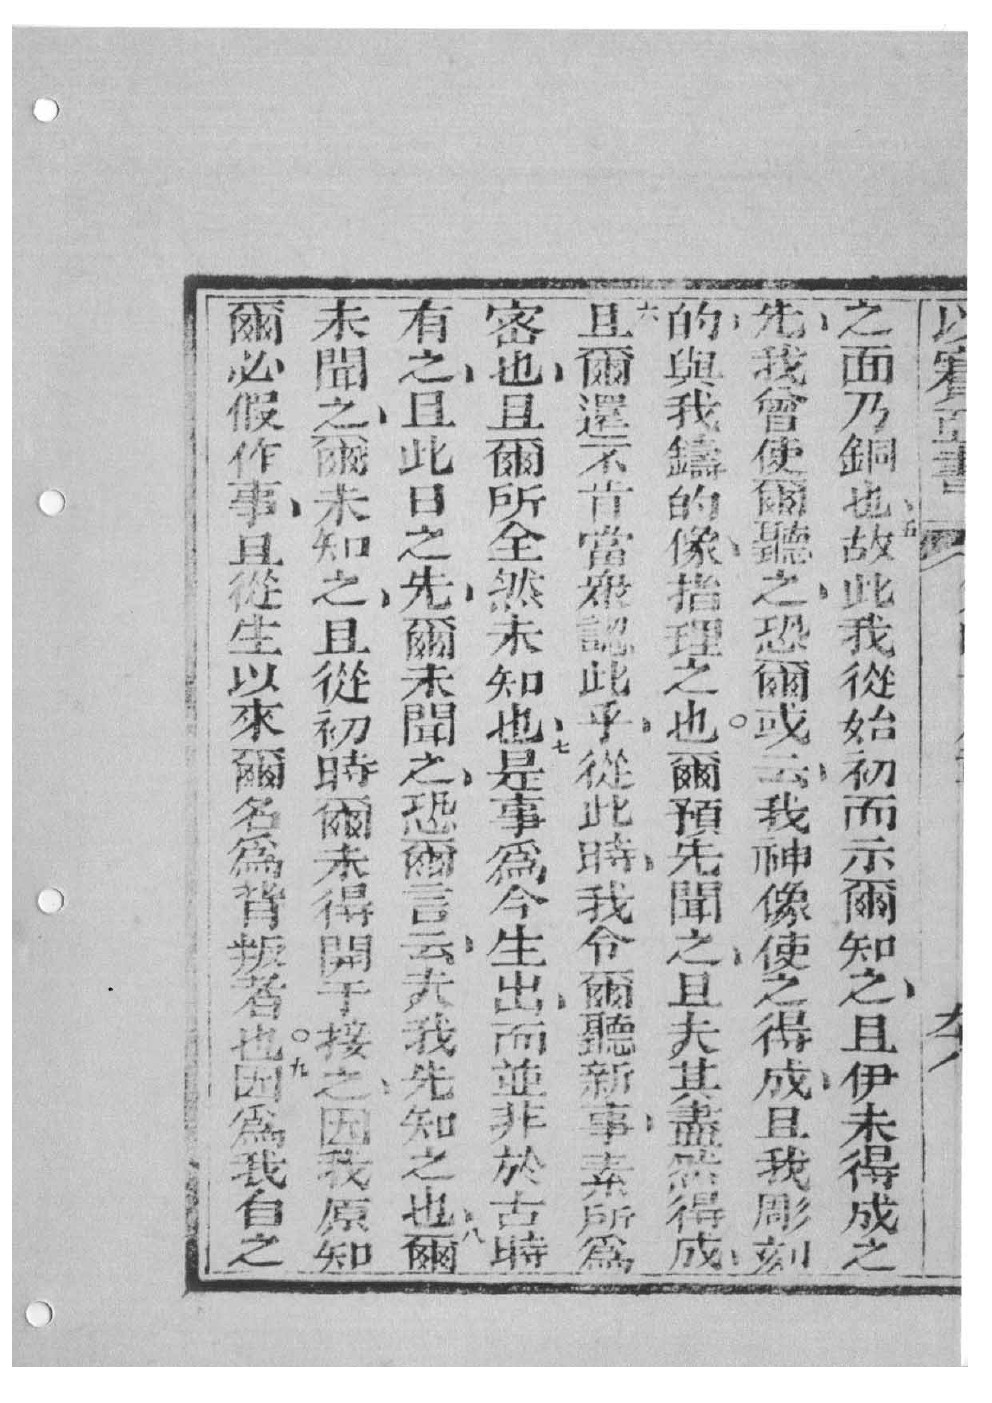 以賽亞書
九八
之面乃銅也五故此我從始初而示爾知之且伊未得成之
先我曾使爾聽之恐爾或云我神像使之得成且我彫刻
的與我鑄的像指理之也○爾預先聞之且夫其盡然得成
六且爾還不肯當衆認此乎從此時我令爾聽新事素所爲
密也且爾所全然未知也七是事爲今生出而並非於古時
有之且此日之先爾未聞之恐爾言云夫我先知之也八爾
未聞之爾未知之且從初時爾未得開于接之因我原知
爾必假作事且從生以來爾名爲背叛者也○九因爲我自之